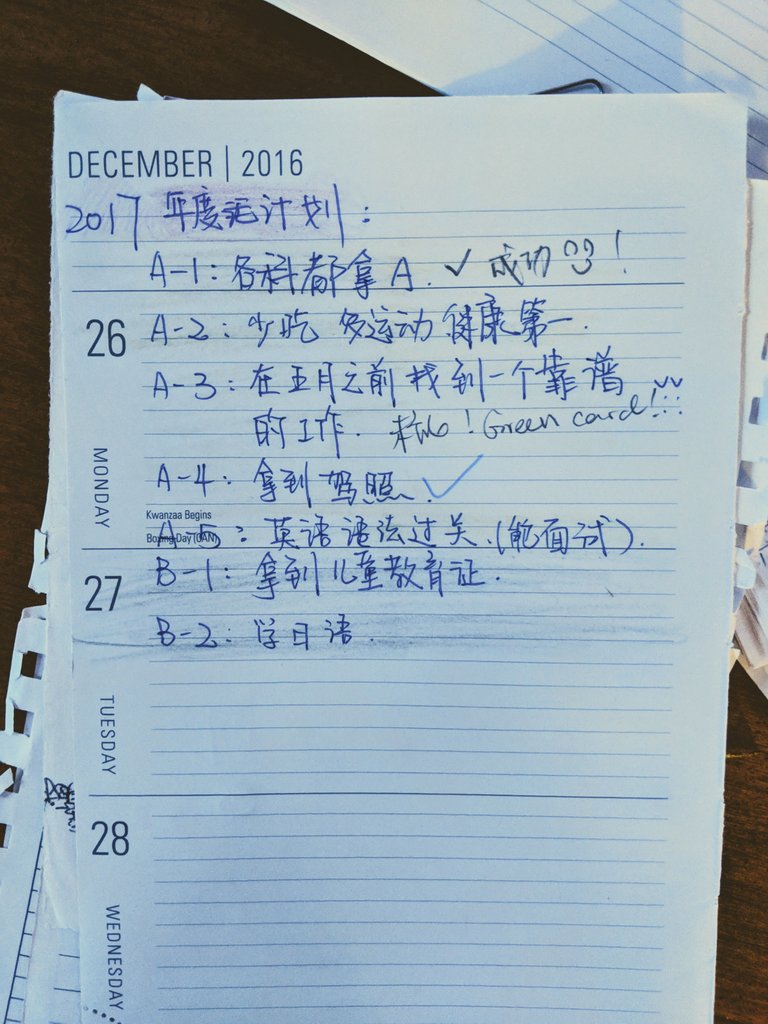 DECEMBER | 2016
2017 年度总计划:
A-1: 各科都拿A. ✓ 成功 !
26
A-2: 少吃 多运动 健康第一.
A-3: 在五月之前找到一个靠谱
的工作. ! Green card!!!
MONDAY
A-4: 拿到驾照. ✓
Kwanzaa Begins
Boxing Day (CAN)
A-5: 英语语法过关.(能面试).
27
B-1: 拿到儿童教育证.
B-2: 学日语.
TUESDAY
28
WEDNESDAY